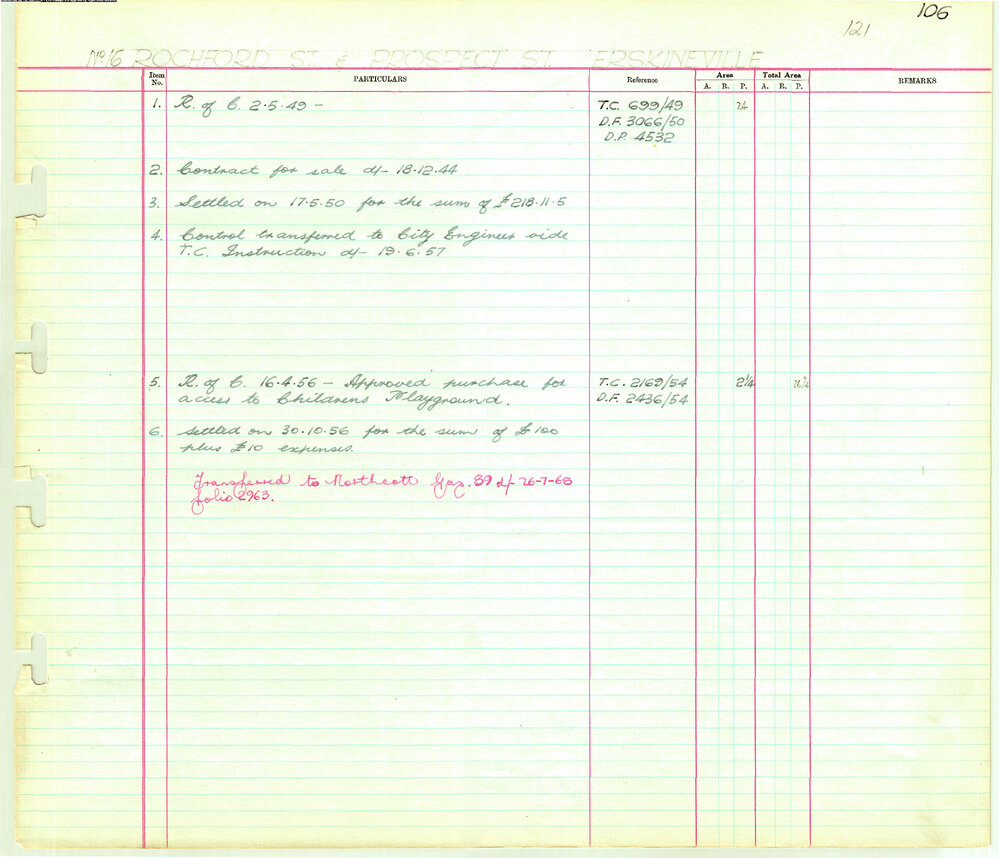 106
121
No. 16 ROCHFORD ST. & PROSPECT ST. ERSKINEVILLE
Item No. PARTICULARS Reference Area Total Area REMARKS
A. R. P. A. R. P.
1. R. of C. 2.5.49 - T.C. 699/49 24
D.F. 3066/50
D.P. 4532
2. Contract for sale d/- 18.12.44
3. Settled on 17.5.50 for the sum of £218.11.5
4. Control transferred to City Engineer vide
T.C. Instruction d/- 19.6.57
5. R. of C. 16.4.56 - Approved purchase for T.C. 2169/54 2¼ 26¼
access to Childrens Playground. D.F. 2436/54
6. Settled on 30.10.56 for the sum of £100
plus £10 expenses.
Transferred to Northcott Gaz. 89 d/- 26-7-68
folio 2963.